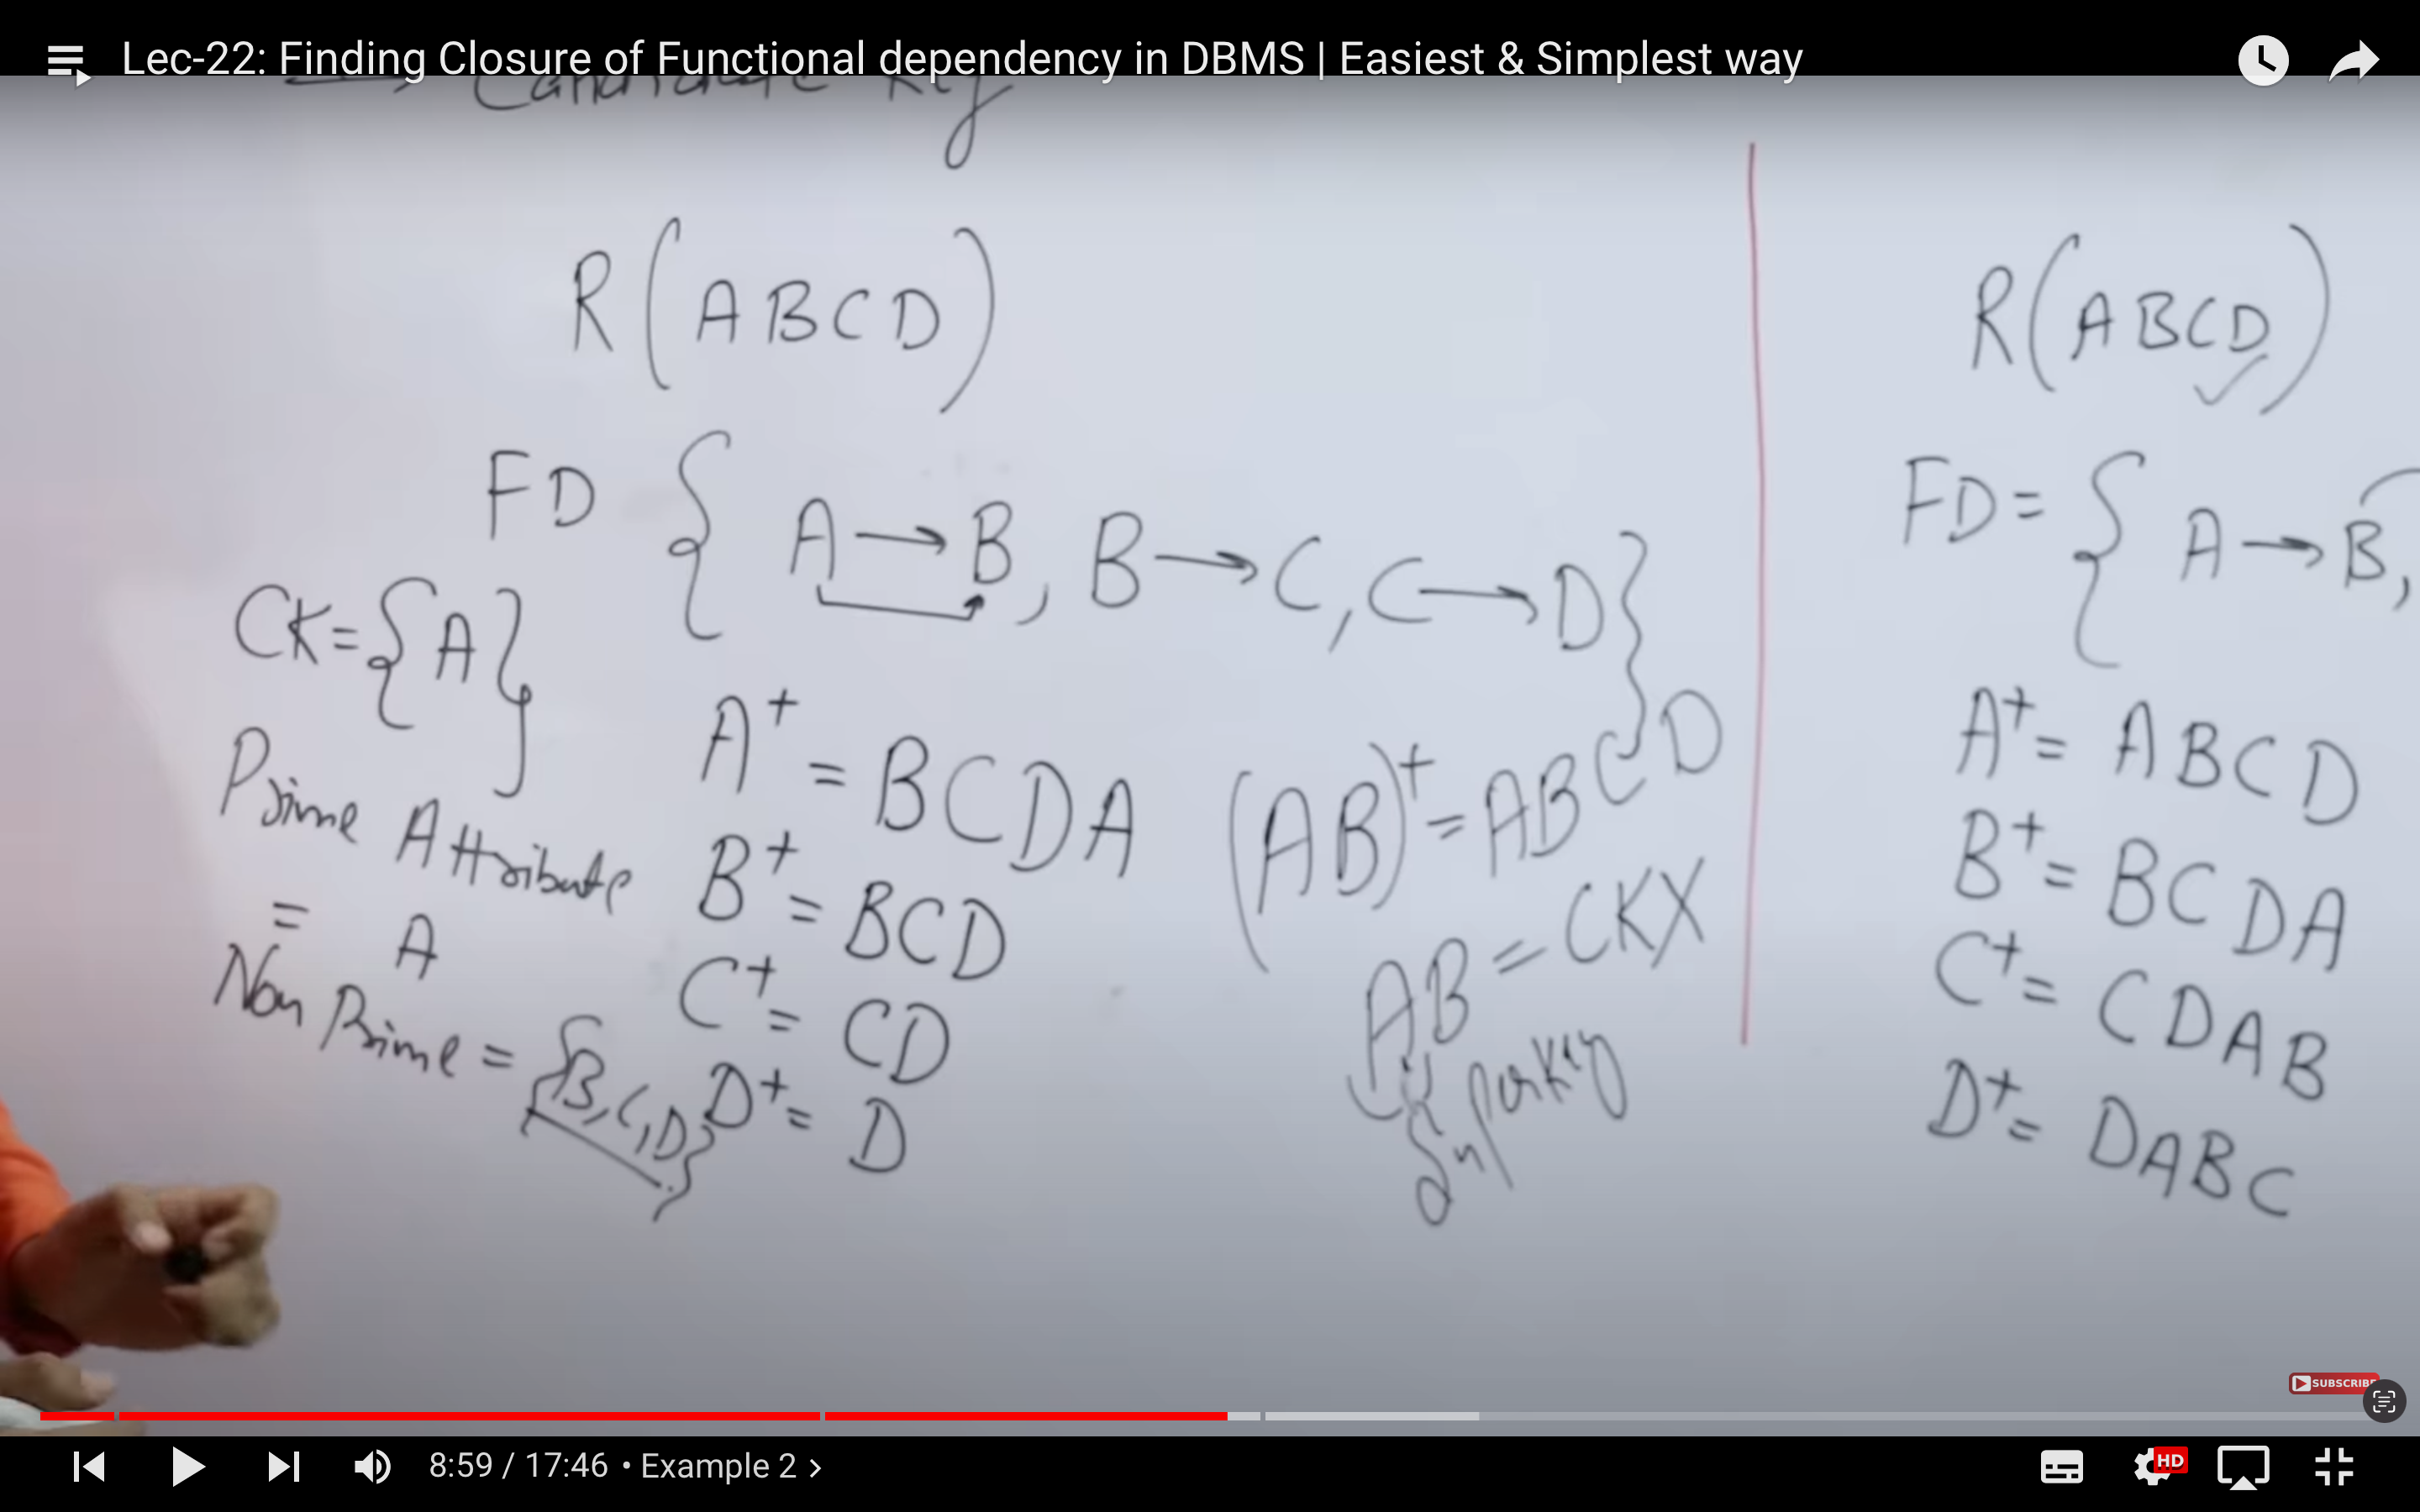 Lec-22: Finding Closure of Functional dependency in DBMS | Easiest & Simplest way
Candidate Key
R(ABCD)
FD { A → B, B → C, C → D }
CK = {A}
Prime Attribute
= A
Non Prime = {B, C, D}
A⁺ = BCDA
B⁺ = BCD
C⁺ = CD
D⁺ = D
(AB)⁺ = ABCD
AB = CK X
R(ABCD) ✓
FD = { A → B,
A⁺ = ABCD
B⁺ = BCDA
C⁺ = CDAB
D⁺ = DABC
SUBSCRIBE
8:59 / 17:46 • Example 2 >
HD